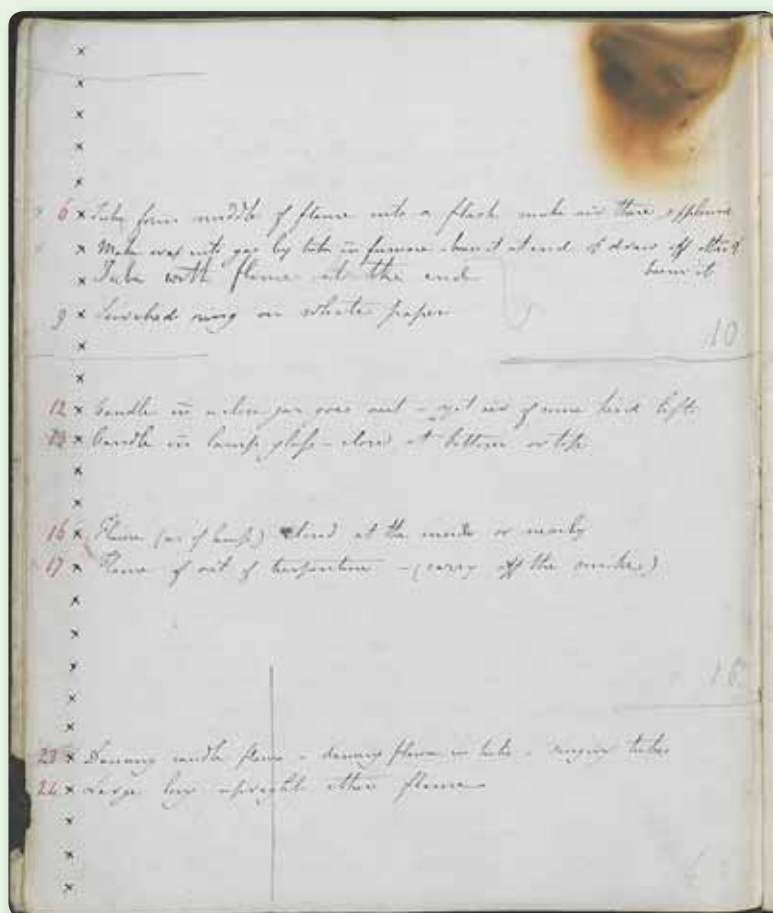 6 x Tube from middle of flame into a flask make air there explosive
x Make wax into gas by tube in furnace burn it at end & draw off other &
burn it
x Tube with flame at the end
9 x Scorched ring on white paper
10
12 x Candle in a close jar goes out - yet air of some kind left
13 x Candle in lamp glass - close at bottom or top
16 x Flame (as of lamp) closed at the inside or nearly
17 x Flame of oil of turpentine - (carry off the smoke)
16
23 x Dancing candle flame - dancing flame in tube - singing tubes
24 x Large low upright ether flame